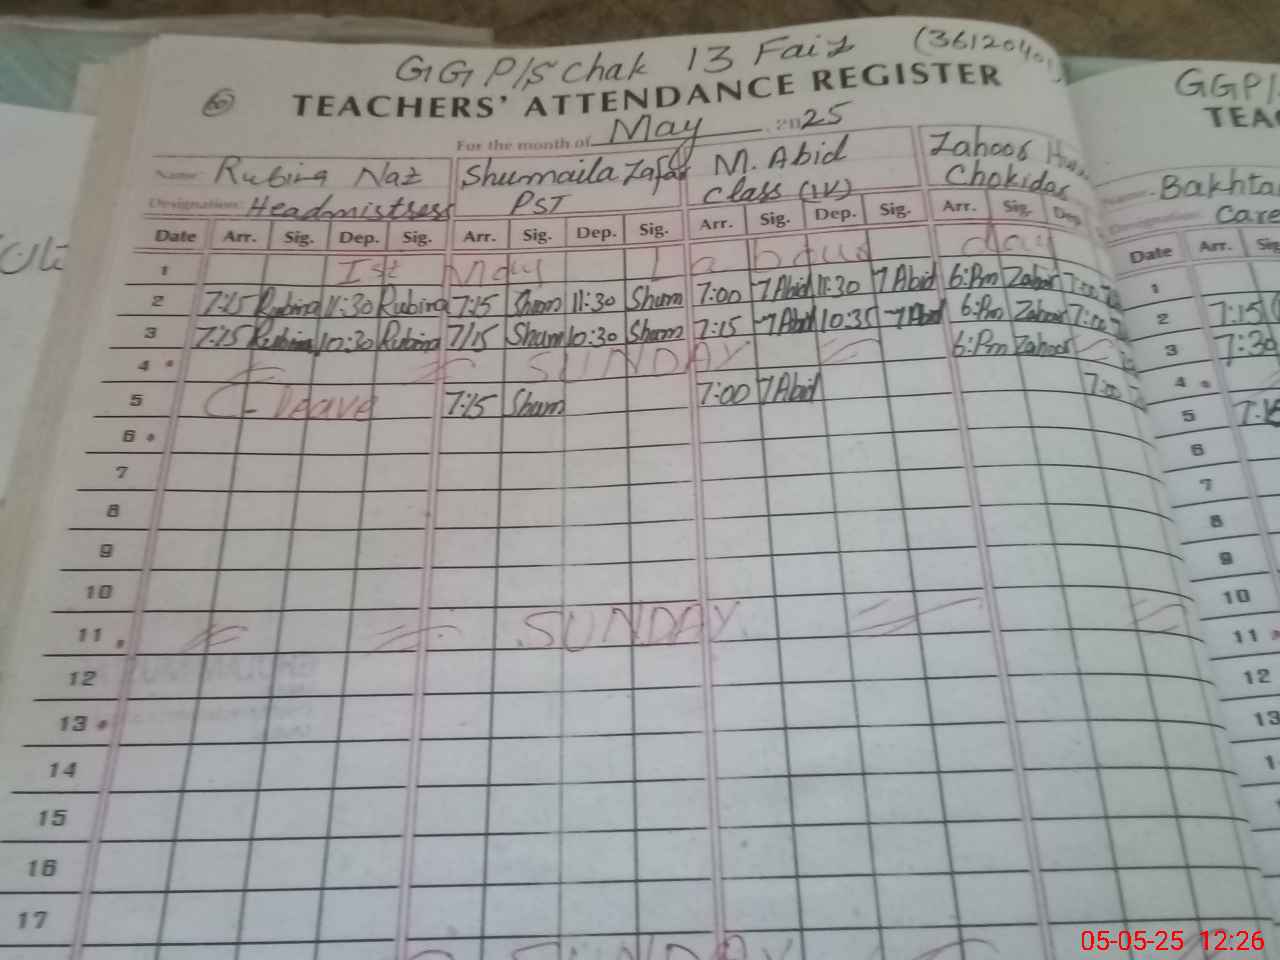 GGP/S Chak 13 Faiz (36120401
TEACHERS' ATTENDANCE REGISTER
For the month of May 2025
Name: Rubina Naz Shumaila Zafar M. Abid Zahoor
Designation: Headmistress PST Class (IV) Chokidar
Date Arr. Sig. Dep. Sig. Arr. Sig. Dep. Sig. Arr. Sig. Dep. Sig. Arr. Sig. Dep.
1 Ist May Labour day
2 7:15 Rubina 11:30 Rubina 7:15 Shum 11:30 Shum 7:00 Abid 11:30 Abid 6:Pm Zahoor 7:00
3 7:15 Rubina 10:30 Rubina 7/15 Shum 10:30 Shum 7:15 Abid 10:35 Abid 6:Pm Zahoor 7:00
4 SUNDAY 6:Pm Zahoor
5 C-leave 7:15 Shum 7:00 Abid 7:00
6
7
8
9
10
11 SUNDAY
12
13
14
15
16
17
SUNDAY
GGP/
TEA
Name: Bakhta
Designation: Care
Date Arr. Sig
1
2 7:15
3 7:30
4
5
6
7
8
9
10
11
12
13
05-05-25 12:26